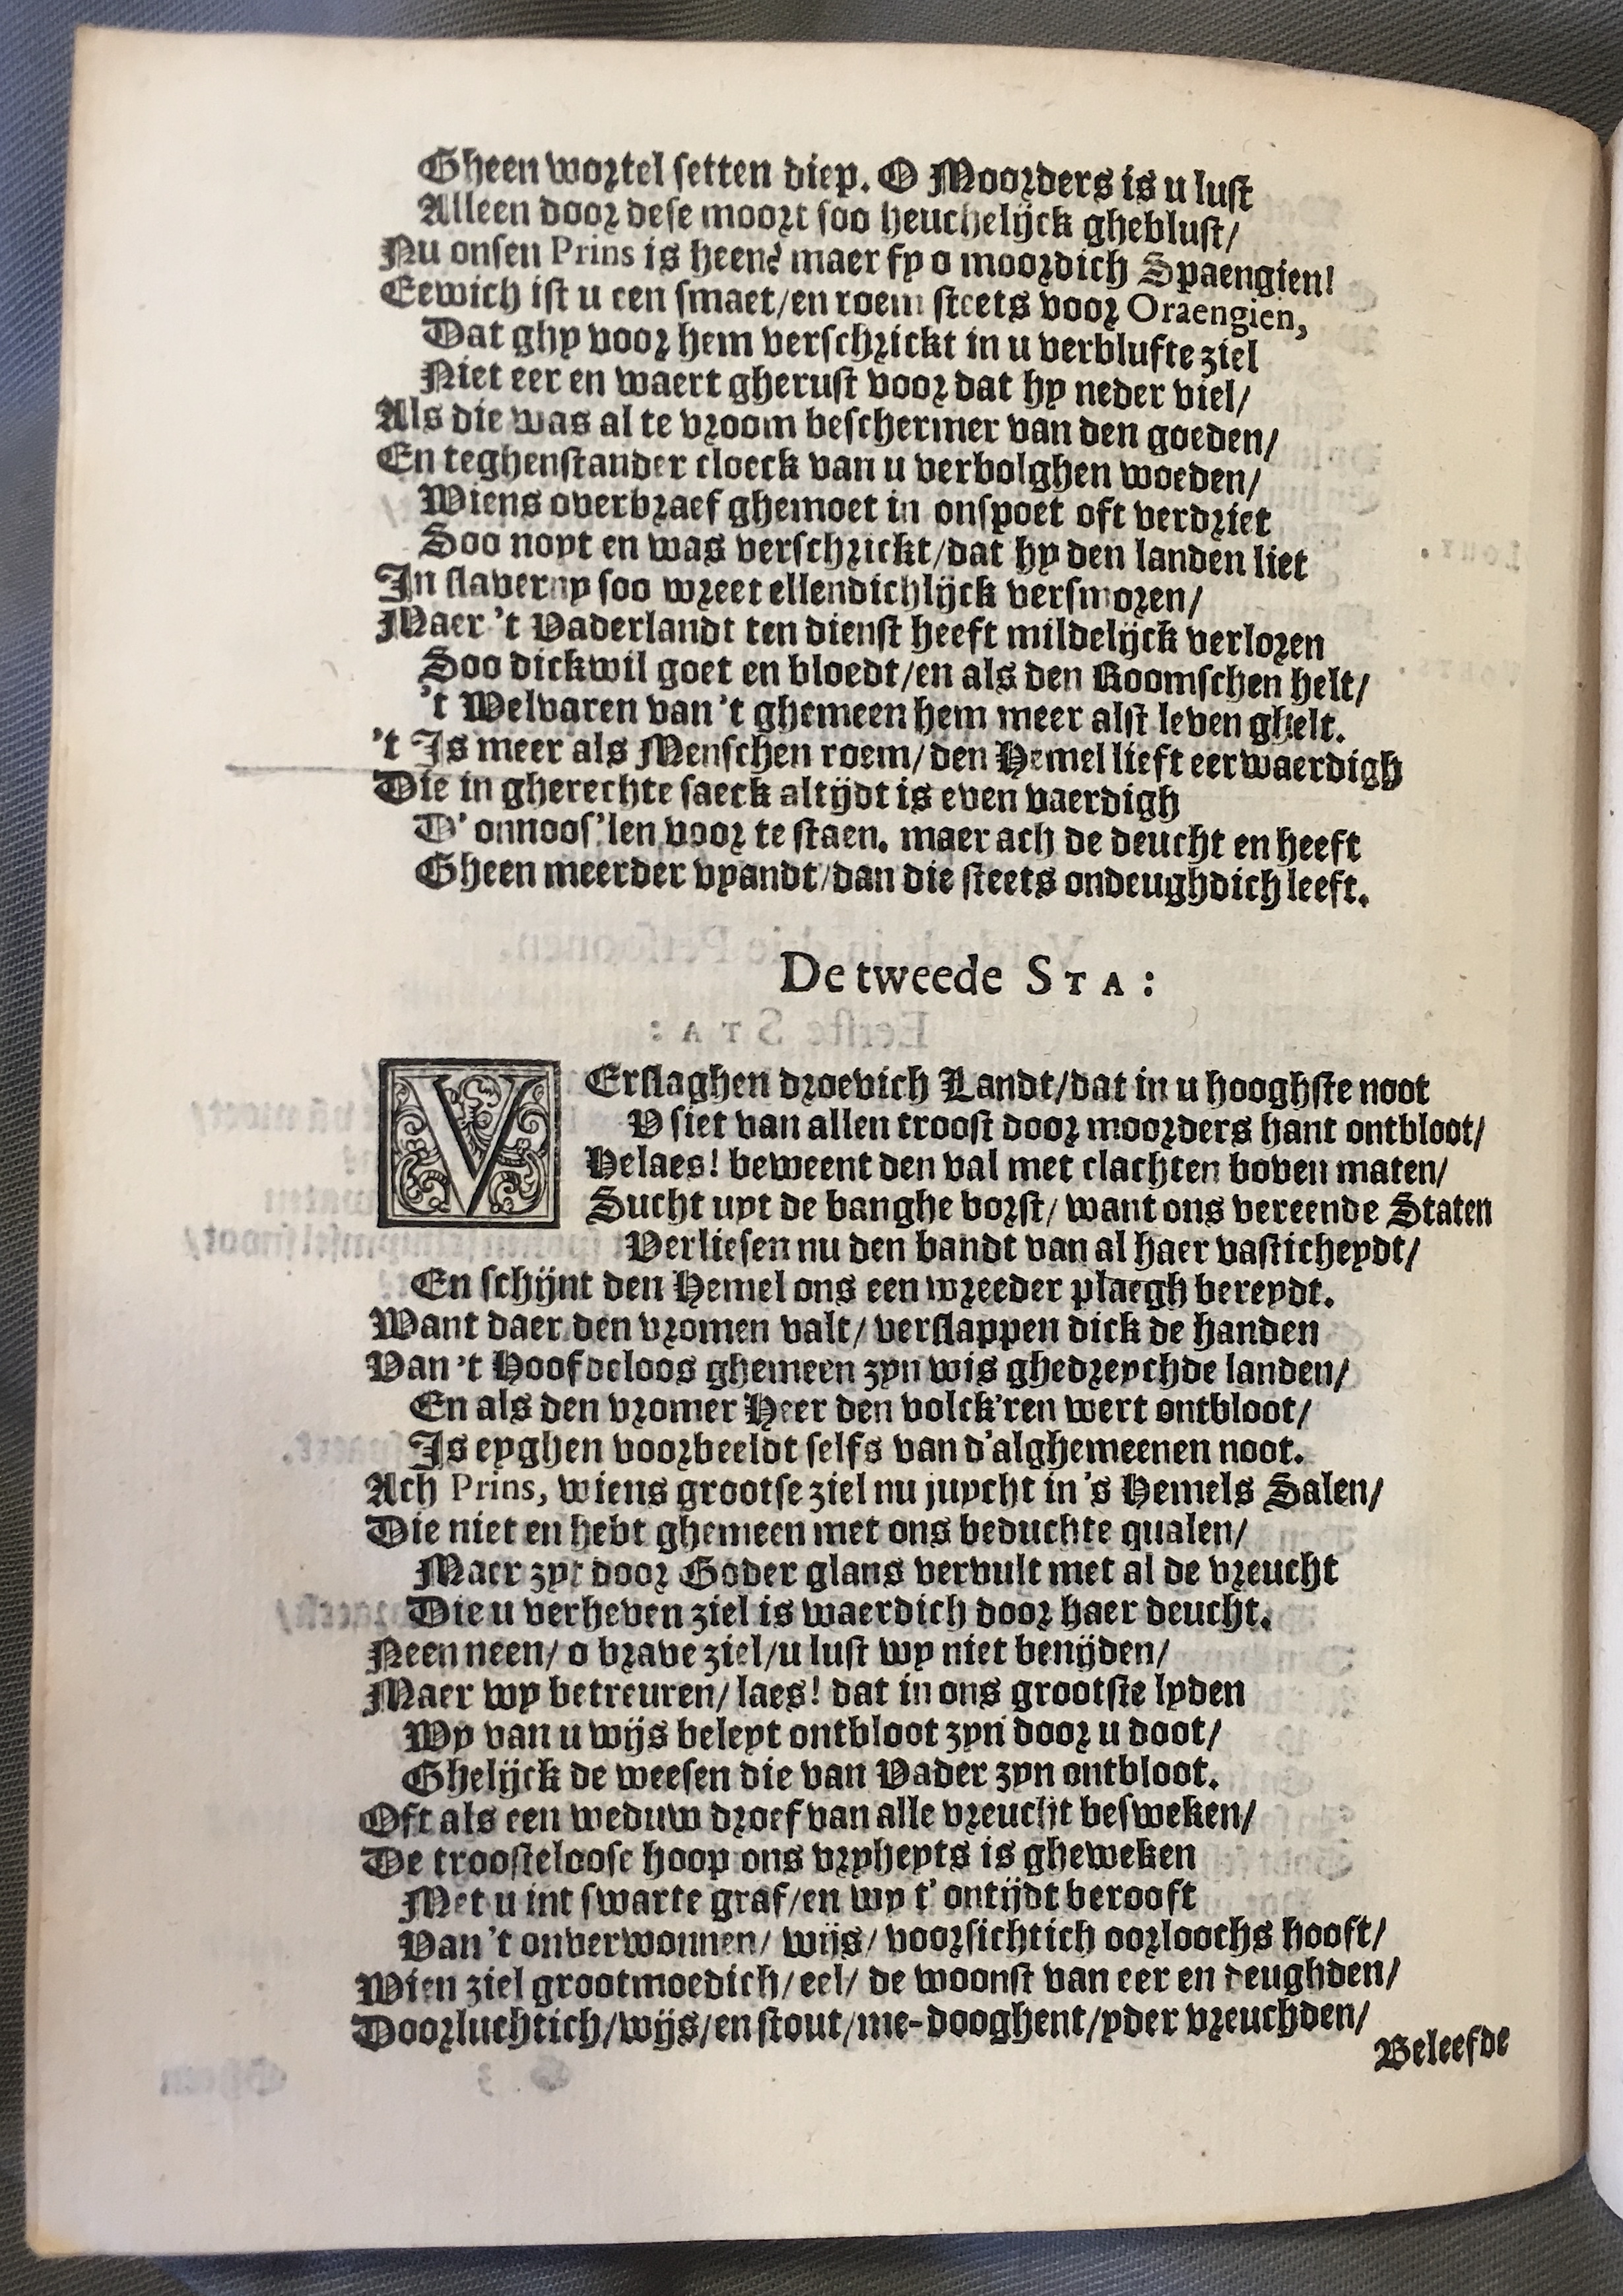 Gheen wortel setten diep. O Moorders is u lust
Alleen door dese moort soo heuchelijck gheblust/
Nu onsen Prins is heen? maer fy o moordich Spaengien!
Eewich ist u een smaet/en roem steets voor Oraengien,
Dat ghy voor hem verschrickt in u verblufte ziel
Niet eer en waert gherust voor dat hy neder viel/
Als die was al te vroom beschermer van den goeden/
En teghenstander cloeck van u verbolghen woeden/
Wiens overbraef ghemoet in onspoet oft verdriet
Soo noyt en was verschrickt/dat hy den landen liet
In slaverny soo wreet ellendichlijck versmoren/
Maer 't Vaderlandt ten dienst heeft mildelijck verloren
Soo dickwil goet en bloedt/en als den Roomschen helt/
't Welvaren van 't ghemeen hem meer alst leven ghelt.
't Is meer als Menschen roem/den Hemel lieft eerwaerdigh
Die in gherechte saeck altijdt is even vaerdigh
D' onnoos'len voor te staen. maer ach de deucht en heeft
Gheen meerder vyandt/dan die steets ondeughdich leeft.
De tweede STA:
VErslaghen droevich Landt/dat in u hooghste noot
V siet van allen troost door moorders hant ontbloot/
Helaes! beweent den val met clachten boven maten/
Sucht uyt de banghe borst/want ons vereende Staten
Verliesen nu den bandt van al haer vasticheydt/
En schijnt den Hemel ons een wreeder plaegh bereydt.
Want daer den vromen valt/verslappen dick de handen
Van 't Hoofdeloos ghemeen zyn wis ghedreychde landen/
En als den vromer Heer den volck'ren wert ontbloot/
Is eyghen voorbeeldt selfs van d'alghemeenen noot.
Ach Prins, wiens grootse ziel nu juycht in 's Hemels Salen/
Die niet en hebt ghemeen met ons beduchte qualen/
Maer zyt door Goder glans vervult met al de vreucht
Die u verheven ziel is waerdich door haer deucht.
Neen neen/o brave ziel/u lust wy niet benijden/
Maer wy betreuren/laes! dat in ons grootste lyden
Wy van u wijs beleyt ontbloot zyn door u doot/
Ghelijck de weesen die van Vader zyn ontbloot.
Oft als een weduw droef van alle vreucht besweken/
De troosteloose hoop ons vryheyts is gheweken
Met u int swarte graf/en wy t' ontijdt berooft
Van 't onverwonnen/wijs/voorsichtich oorloochs hooft/
Wien ziel grootmoedich/eel/de woonst van eer en deughden/
Doorluchtich/wijs/en stout/me-dooghent/yder vreuchden/
Beleefde